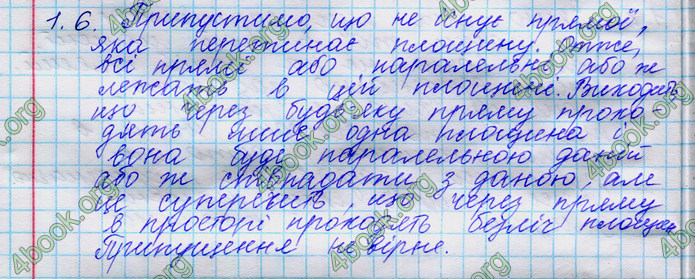 1.6. Припустимо, що не існує прямої,
яка перетинає площину. Отже,
всі прямі або паралельні, або ж
лежать в цій площині. Виходить
що через будь-яку пряму прохо-
дять лише одна площина й
вона буде паралельною даній
або ж співпадати з даною, але
це суперечить, що через пряму
в просторі проходять безліч площин
Припущення не вірне.
4book.org